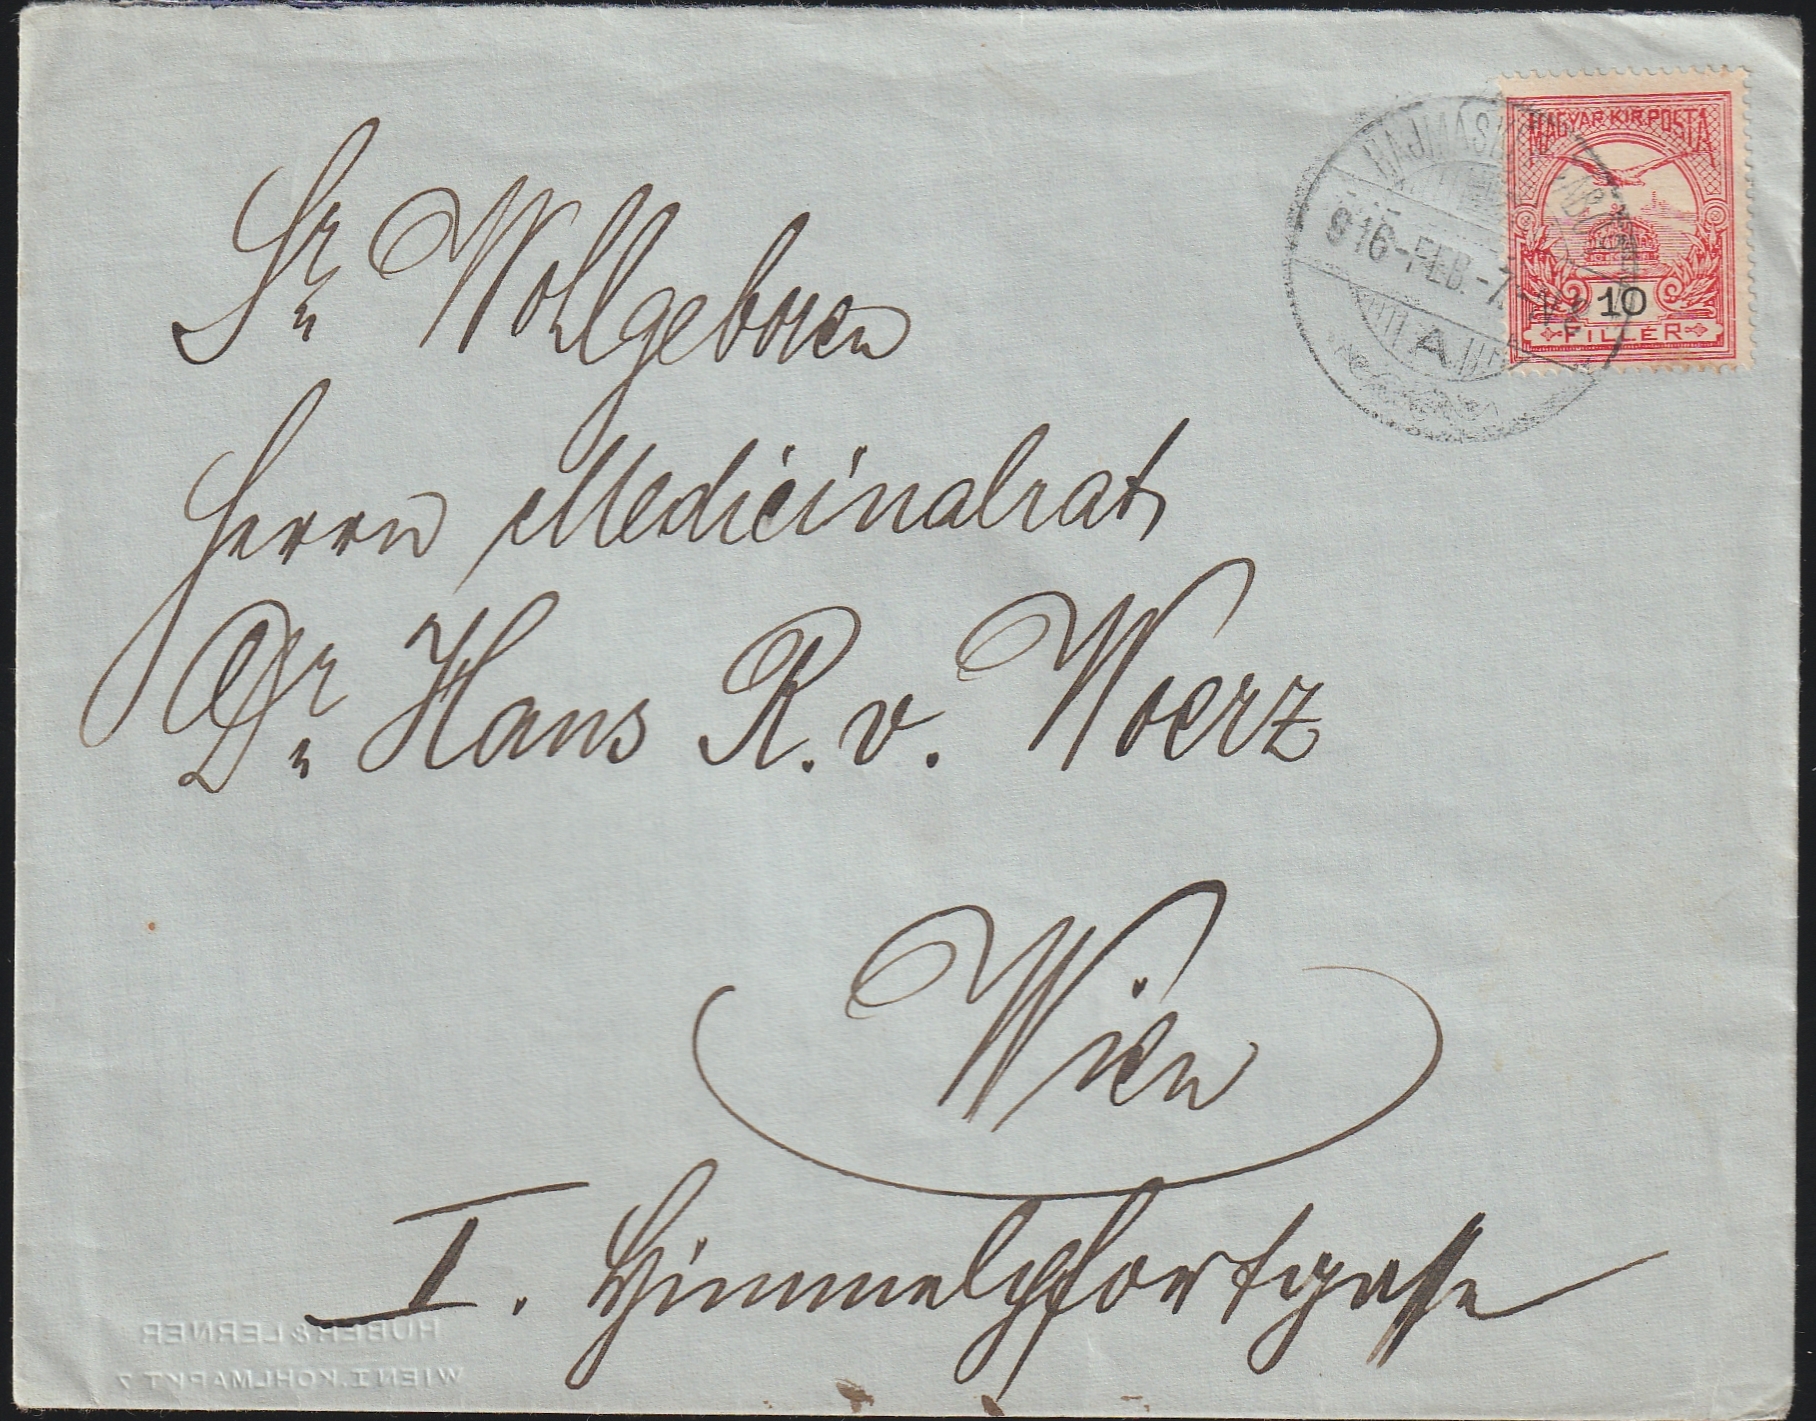 MAGYAR KIR. POSTA
10
FILLÉR
HAJMÁSKÉR
916 FEB. -7.
A
Sr. Wohlgeboren
Herrn Medicinalrat
Dr. Hans R. v. Woerz
Wien
I. Himmelpfortgasse
HUBER & LERNER
WIEN I. KOHLMARKT 7